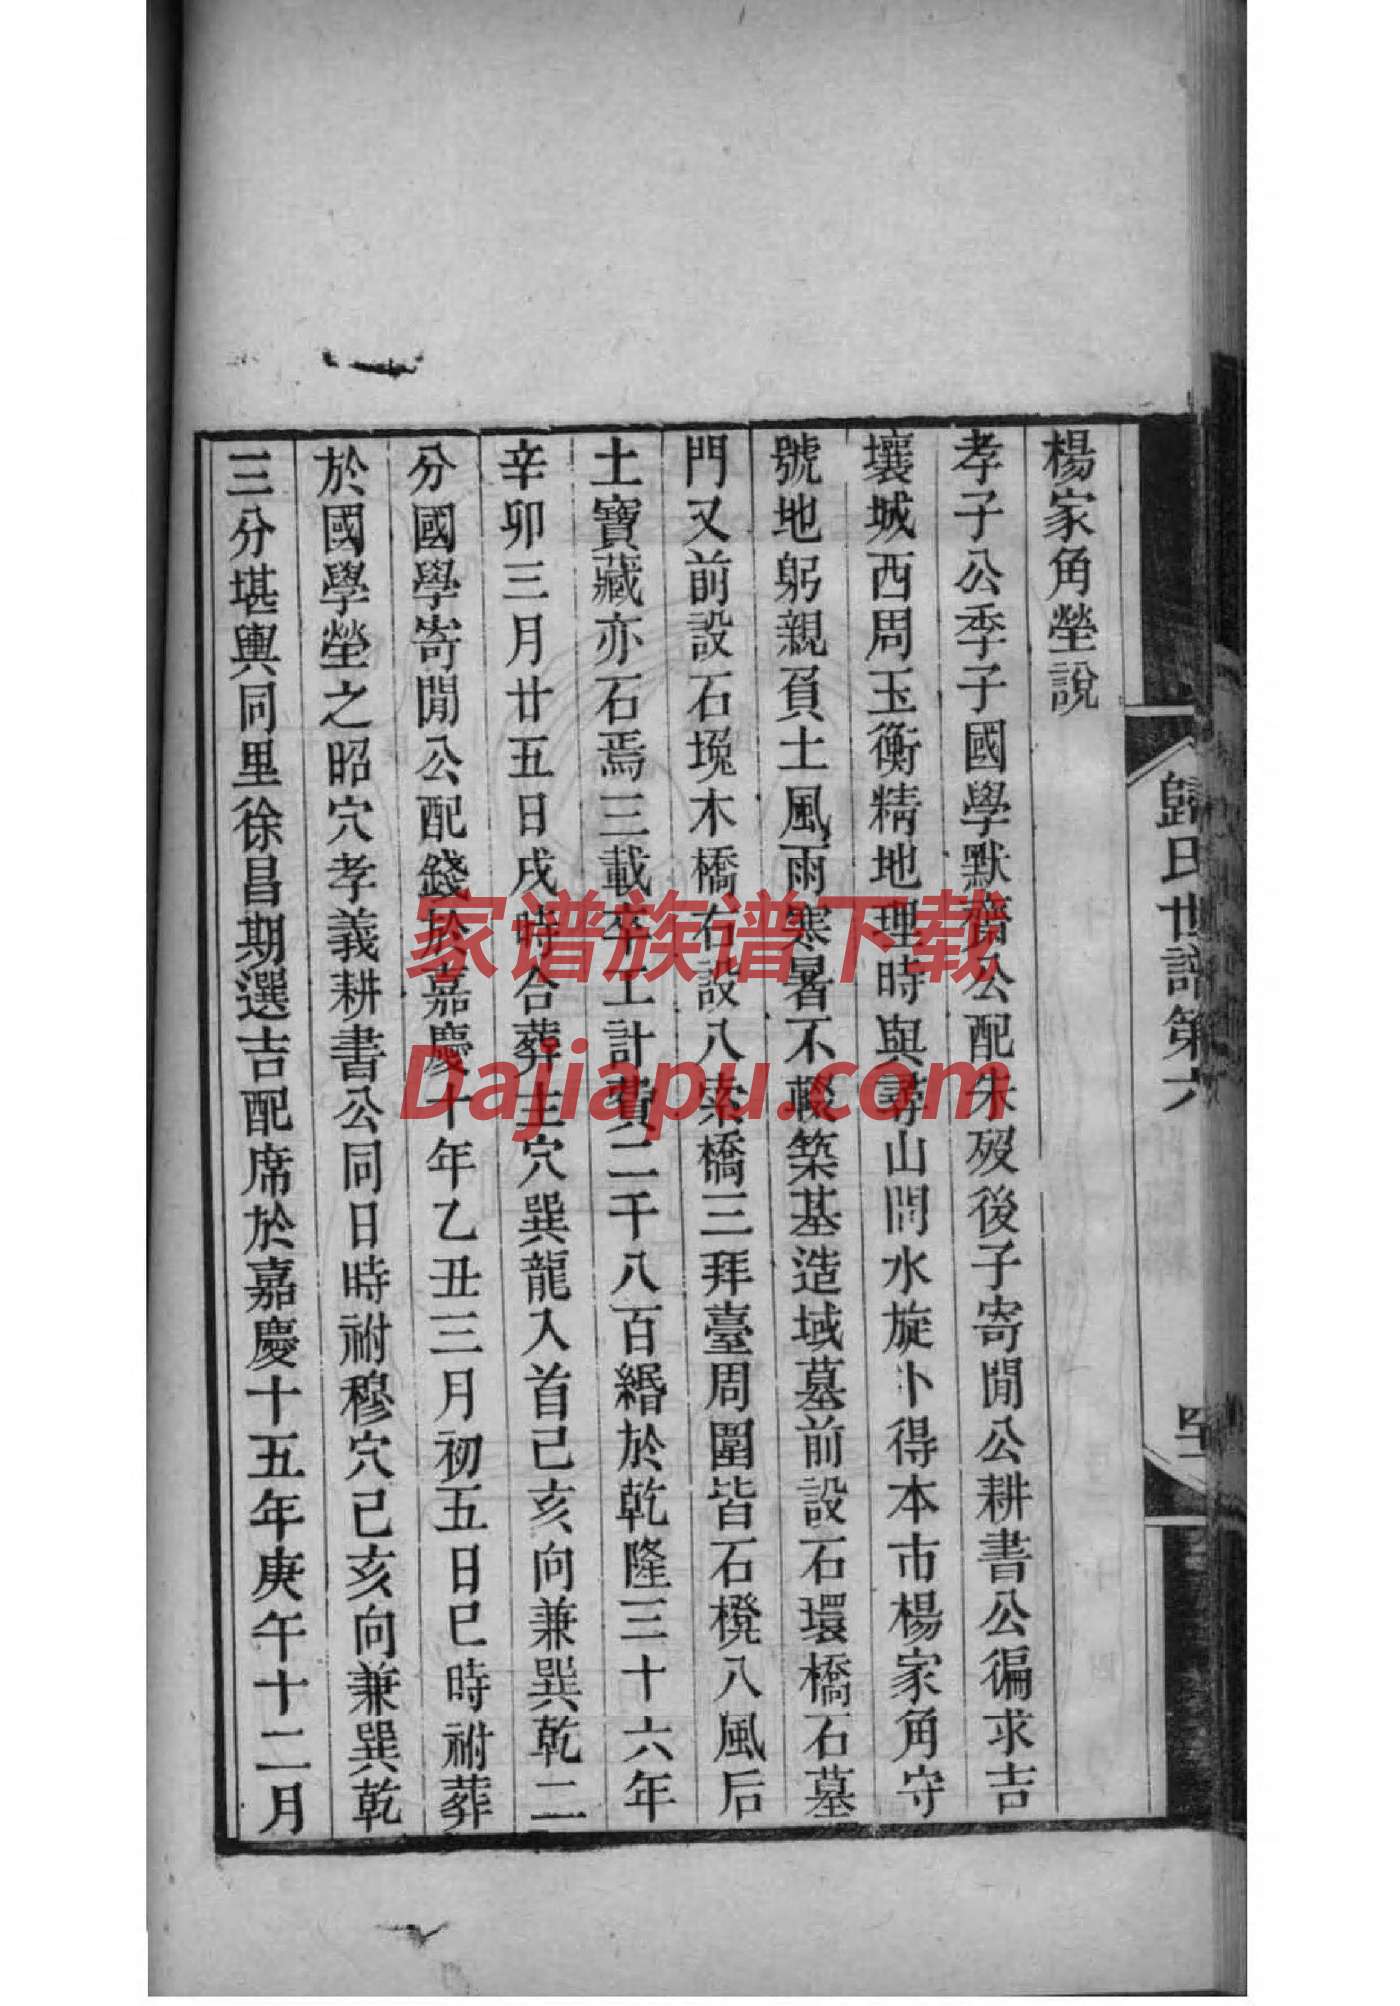 楊家角塋說
孝子公季子國學默齋公配朱歿後子寄閒公耕書公徧求吉
壤城西周玉衡精地理時與尋山問水旋卜得本市楊家角守
號地躬親負土風雨寒暑不輟築基造域墓前設石環橋石墓
門又前設石墈木橋右設八索橋三拜臺周圍皆石櫈八風后
土寶藏亦石焉三載卒工計費二千八百緡於乾隆三十六年
辛卯三月廿五日戌時合葬主穴巽龍入首己亥向兼巽乾二
分國學寄閒公配錢於嘉慶十年乙丑三月初五日巳時祔葬
於國學塋之昭穴孝義耕書公同日時祔穆穴己亥向兼巽乾
三分堪輿同里徐昌期選吉配席於嘉慶十五年庚午十二月
歸氏世譜第六
家谱族谱下载
Dajiapu.com